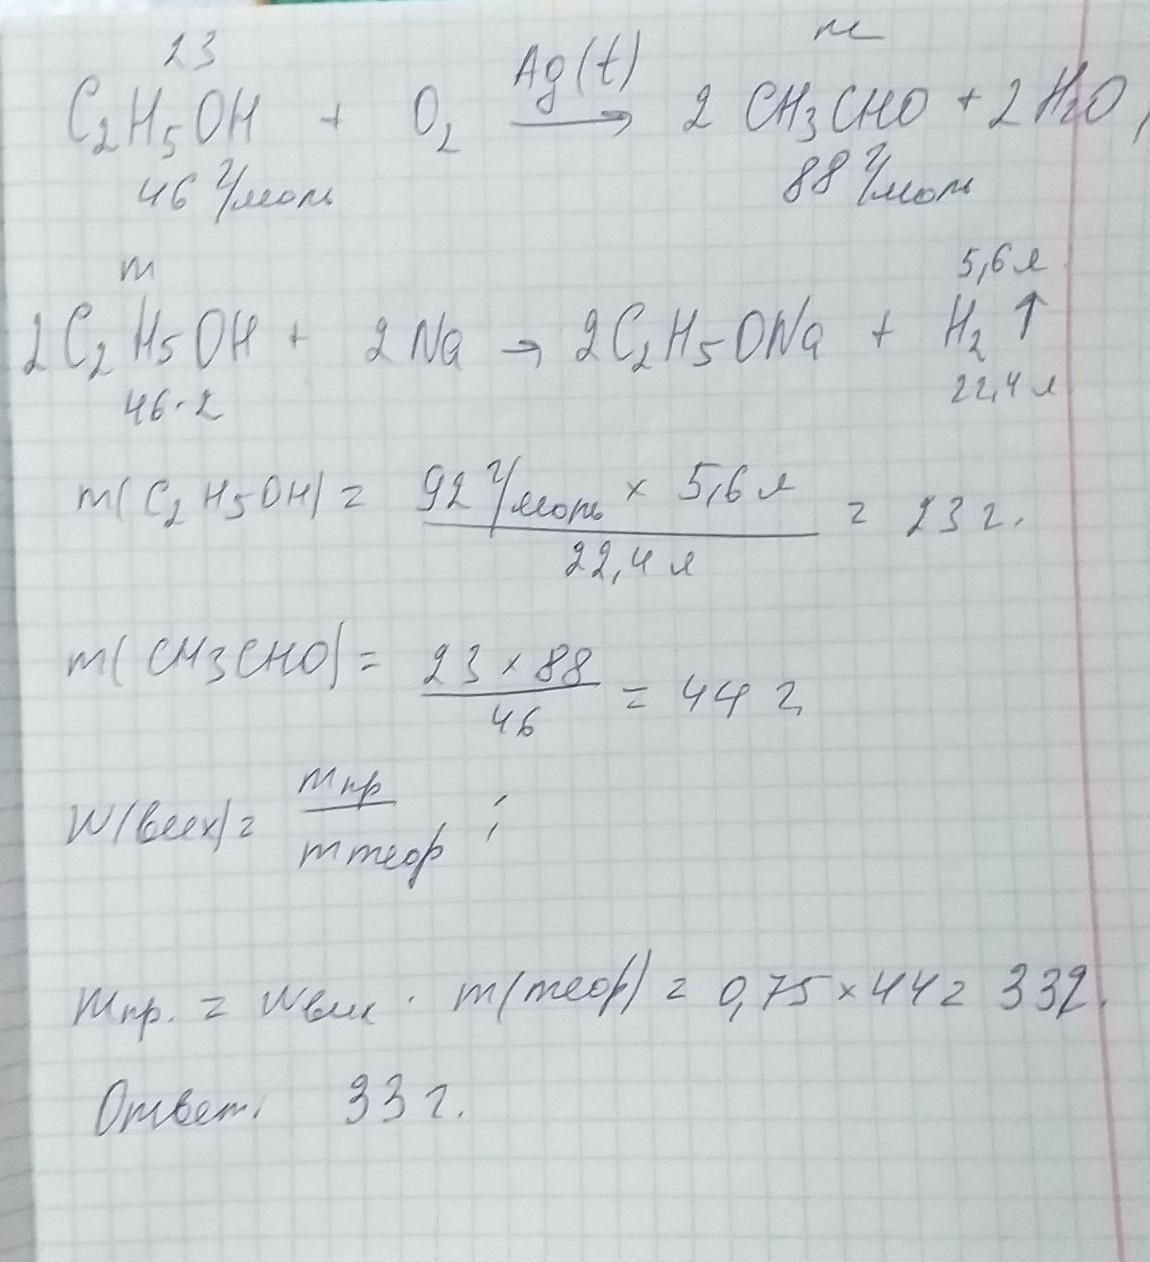 23 m
C2H5OH + O2 Ag(t) → 2 CH3CHO + 2H2O,
46 г/моль 88 г/моль
m 5,6 л
2C2H5OH + 2Na → 2C2H5ONa + H2 ↑
46·2 22,4 л
m(C2H5OH) = 92 г/моль × 5,6 л / 22,4 л = 23 г.
m(CH3CHO) = 23 × 88 / 46 = 44 г
W(вых) = mпр / mтеор ;
mпр. = Wвых · m(теор) = 0,75 × 44 = 33г.
Ответ: 33 г.